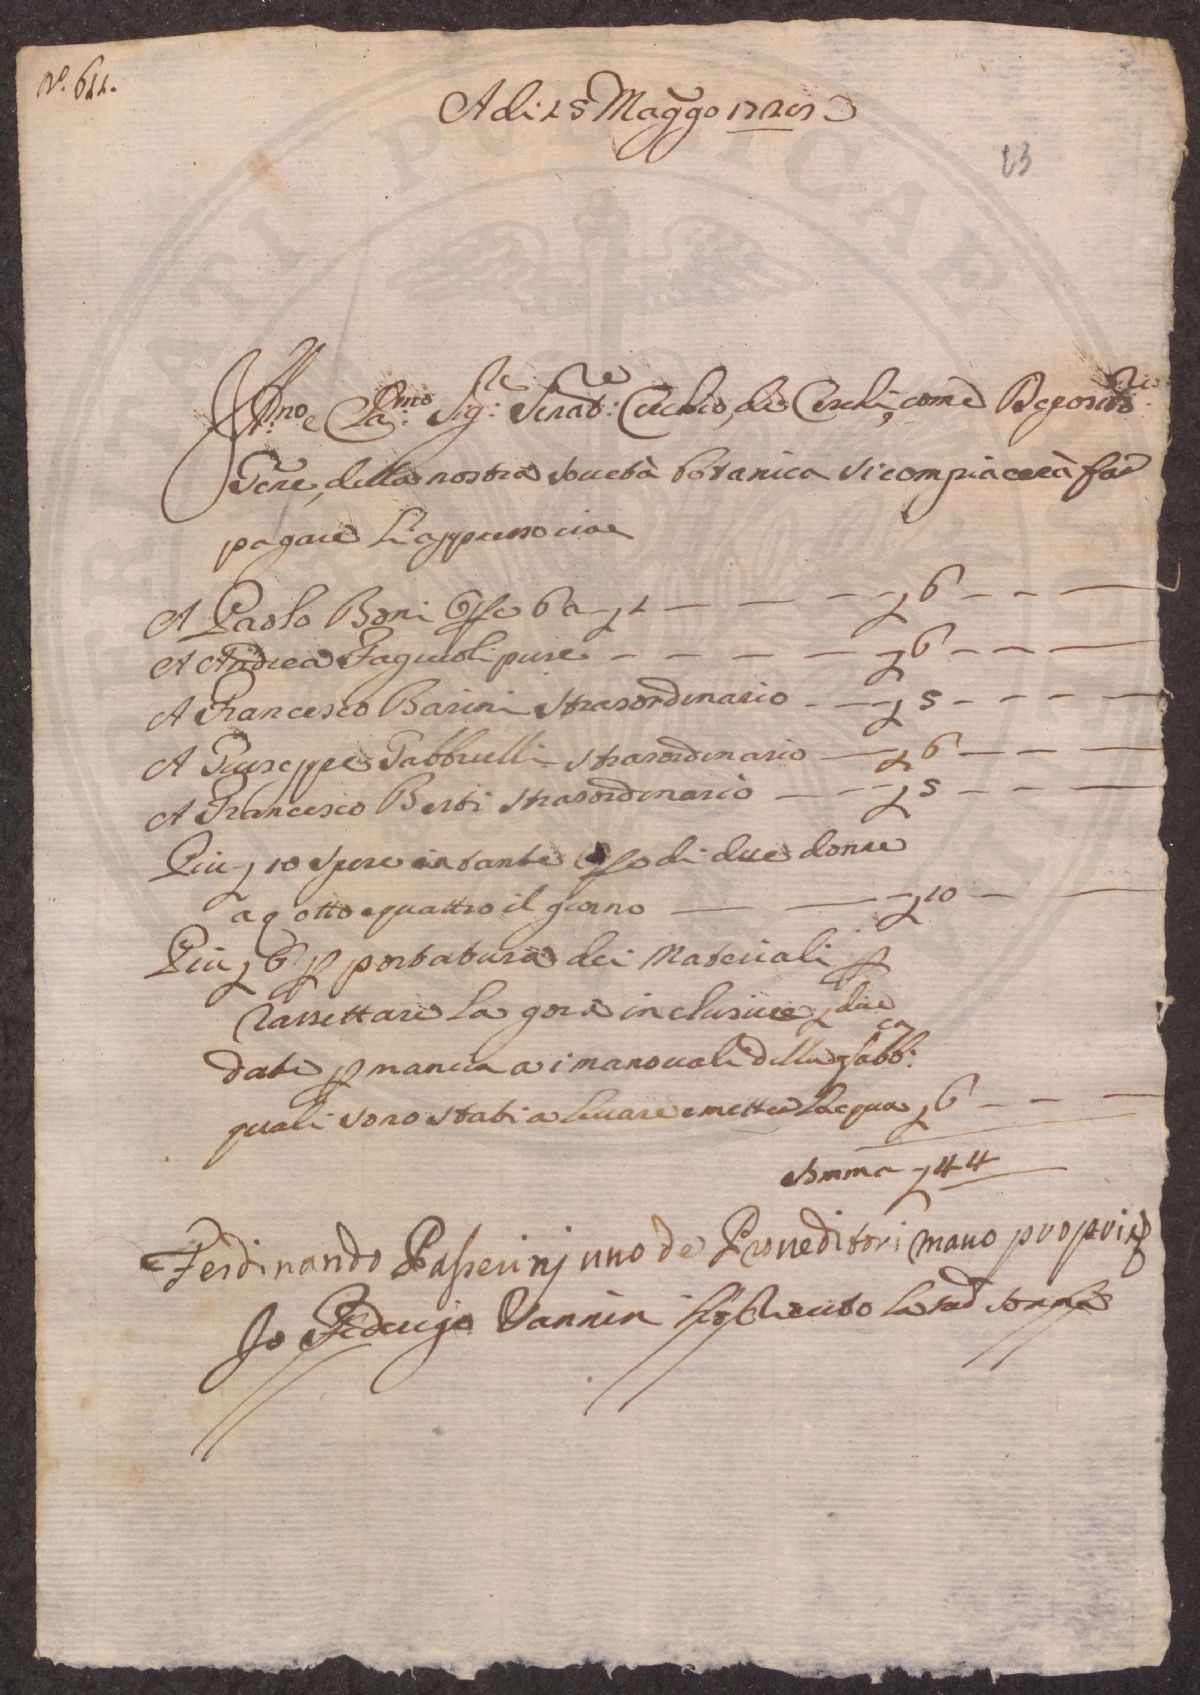 N.º 611.
A di 15 Maggo 1720
13
Ill.mo e Cla.mo Sig.re Senat.re Cerchio de Cerchi come Deposit.rio
Gñe della nostra Società botanica si compiacerà far
pagare li appresso cioè
A Paolo Boni Opre 6 a £ 1 — — — £ 6 — — —
A Andrea Fagiuoli pure — — — — £ 6 — — —
A Francesco Barini strasordinario — — £ 5 — — —
A Giuseppe Gabbrielli strasordinario — £ 6 — — —
A Francesco Berti strasordinario — — £ 5 — — —
Più £ 10 spese in tante di due donne
a otto e quattro il giorno — — £ 10 — —
Più £ 6 p portatura dei Materiali p
rassettare la gora inclusive £ due
date p mancia a i manovali della fabb.ca
quali sono stati a levare e mettere l'acqua £ 6 — — —
Somma £ 44
Ferdinando Passerinj uno de Proveditori mano propria
Io Federigo Vannini ho riceuto la sud somma